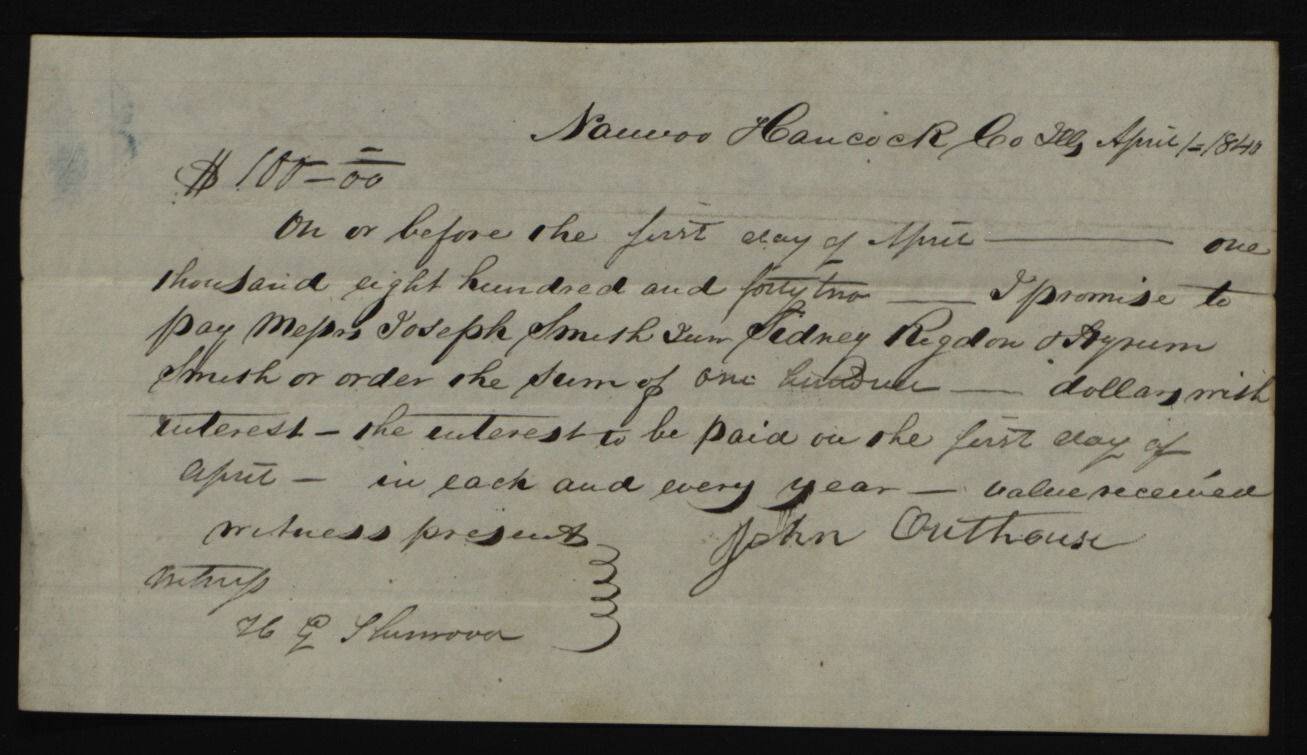 Nauvoo Hancock Co Ills April 1= 1840
$ 100-00
On or before the first day of April — one
thousand eight hundred and forty two — I promise to
pay Messrs Joseph Smith Junr Sidney Rigdon & Hyrum
Smith or order the sum of one hundred — dollars with
interest – the interest to be paid on the first day of
April – in each and every year – value received
witness present
John Outhouse
Witness
H G Sherwood